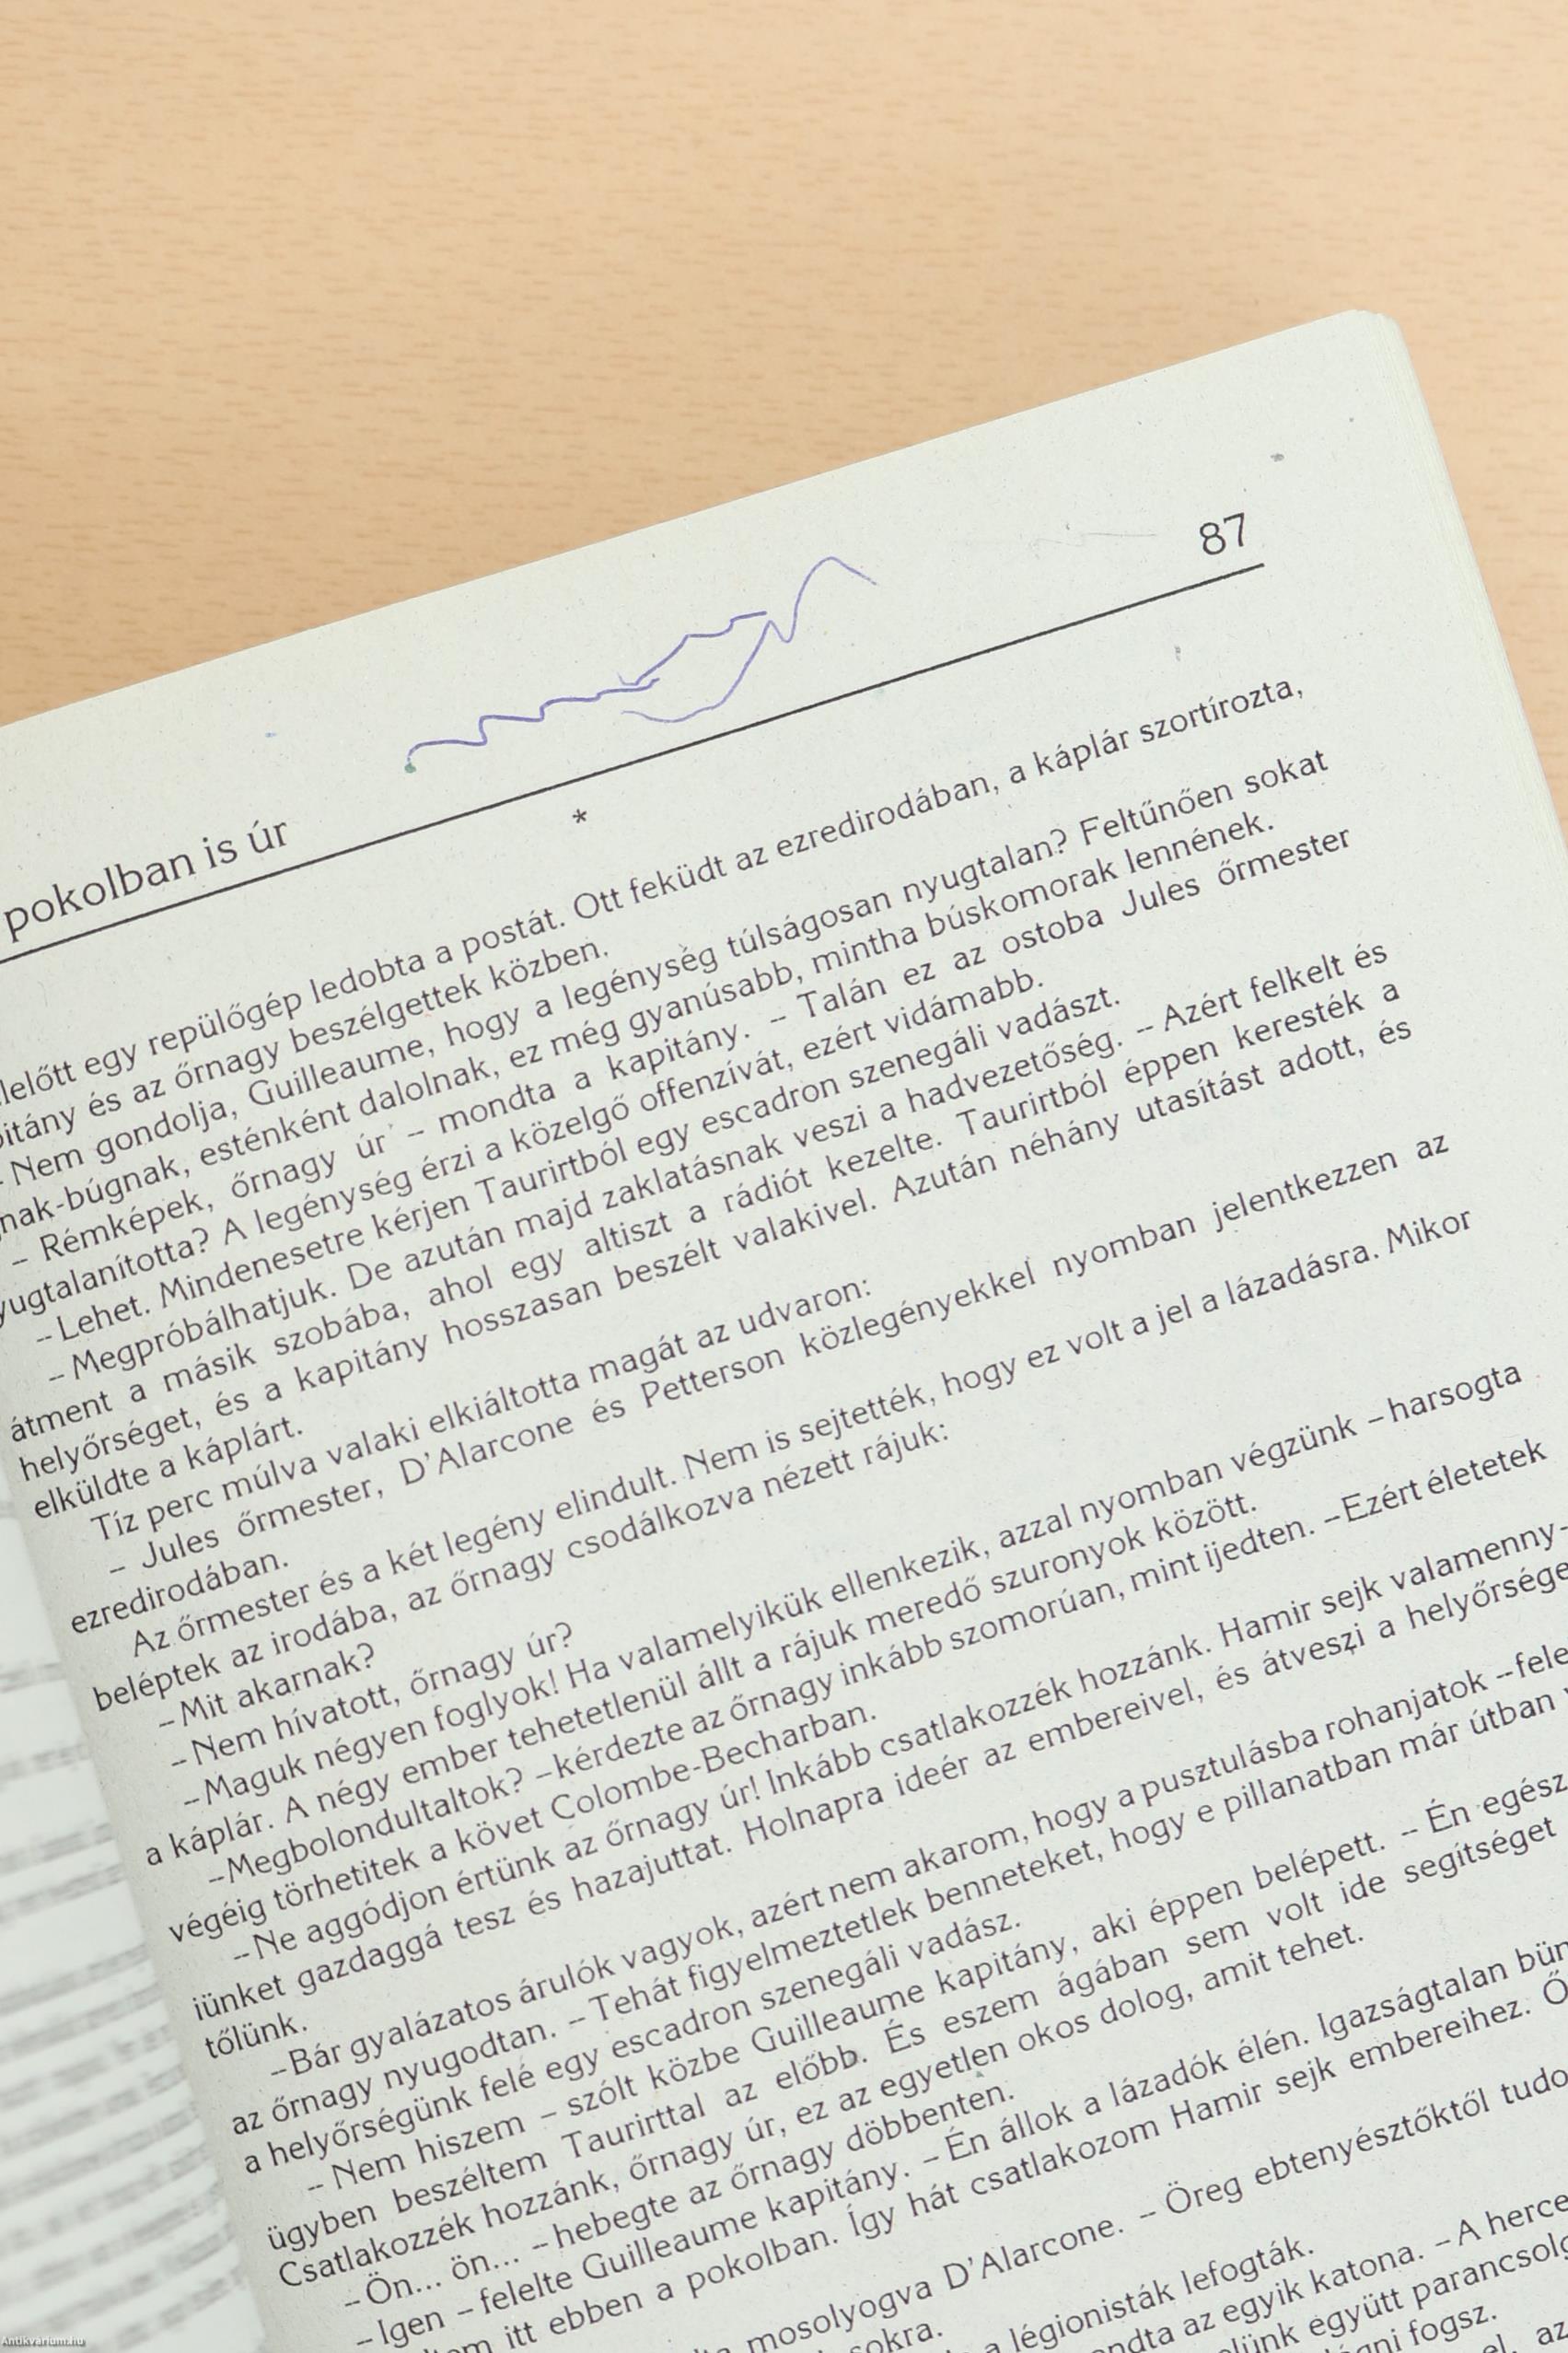 87
pokolban is úr
*
egy repülőgép ledobta a postát. Ott feküdt az ezredirodában, a káplár szortírozta,
és az őrnagy beszélgettek közben.
– Nem gondolja, Guilleaume, hogy a legénység túlságosan nyugtalan? Feltűnően sokat
esténként dalolnak, ez még gyanúsabb, mintha búskomorak lennének.
– Rémképek, őrnagy úr – mondta a kapitány. – Talán ez az ostoba Jules őrmester
A legénység érzi a közelgő offenzívát, ezért vidámabb.
– Lehet. Mindenesetre kérjen Taurirtból egy escadron szenegáli vadászt.
– Megpróbálhatjuk. De azután majd zaklatásnak veszi a hadvezetőség. – Azért felkelt és
átment a másik szobába, ahol egy altiszt a rádiót kezelte. Taurirtból éppen keresték a
helyőrséget, és a kapitány hosszasan beszélt valakivel. Azután néhány utasítást adott, és
elküldte a káplárt.
Tíz perc múlva valaki elkiáltotta magát az udvaron:
– Jules őrmester, D'Alarcone és Petterson közlegényekkel nyomban jelentkezzen az
ezredirodában.
Az őrmester és a két legény elindult. Nem is sejtették, hogy ez volt a jel a lázadásra. Mikor
beléptek az irodába, az őrnagy csodálkozva nézett rájuk:
– Mit akarnak?
– Nem hívatott, őrnagy úr?
– Maguk négyen foglyok! Ha valamelyikük ellenkezik, azzal nyomban végzünk – harsogta
a káplár. A négy ember tehetetlenül állt a rájuk meredő szuronyok között.
– Megbolondultaltok? – kérdezte az őrnagy inkább szomorúan, mint ijedten. – Ezért életetek
végéig törhetitek a követ Colombe-Becharban.
– Ne aggódjon értünk az őrnagy úr! Inkább csatlakozzék hozzánk. Hamir sejk valamenny-
iünket gazdaggá tesz és hazajuttat. Holnapra ideér az embereivel, és átveszi a
tőlünk.
– Bár gyalázatos árulók vagyok, azért nem akarom, hogy a pusztulásba rohanjatok –
az őrnagy nyugodtan. – Tehát figyelmeztetlek benneteket, hogy e pillanatban már útban
a helyőrségünk felé egy escadron szenegáli vadász.
– Nem hiszem – szólt közbe Guilleaume kapitány, aki éppen belépett. – Én egész
ügyben beszéltem Taurirttal az előbb. És eszem ágában sem volt ide segítséget
Csatlakozzék hozzánk, őrnagy úr, ez az egyetlen okos dolog, amit tehet.
– Ön... ön... – hebegte az őrnagy döbbenten.
– Igen – felelte Guilleaume kapitány. – Én állok a lázadók élén. Igazságtalan
itt ebben a pokolban. Így hát csatlakozom Hamir sejk embereihez.
mosolyogva D'Alarcone. – Öreg ebtenyésztőktől
a légionisták lefogták.
az egyik katona. – A
együtt
fogsz.
Antikvárium.hu